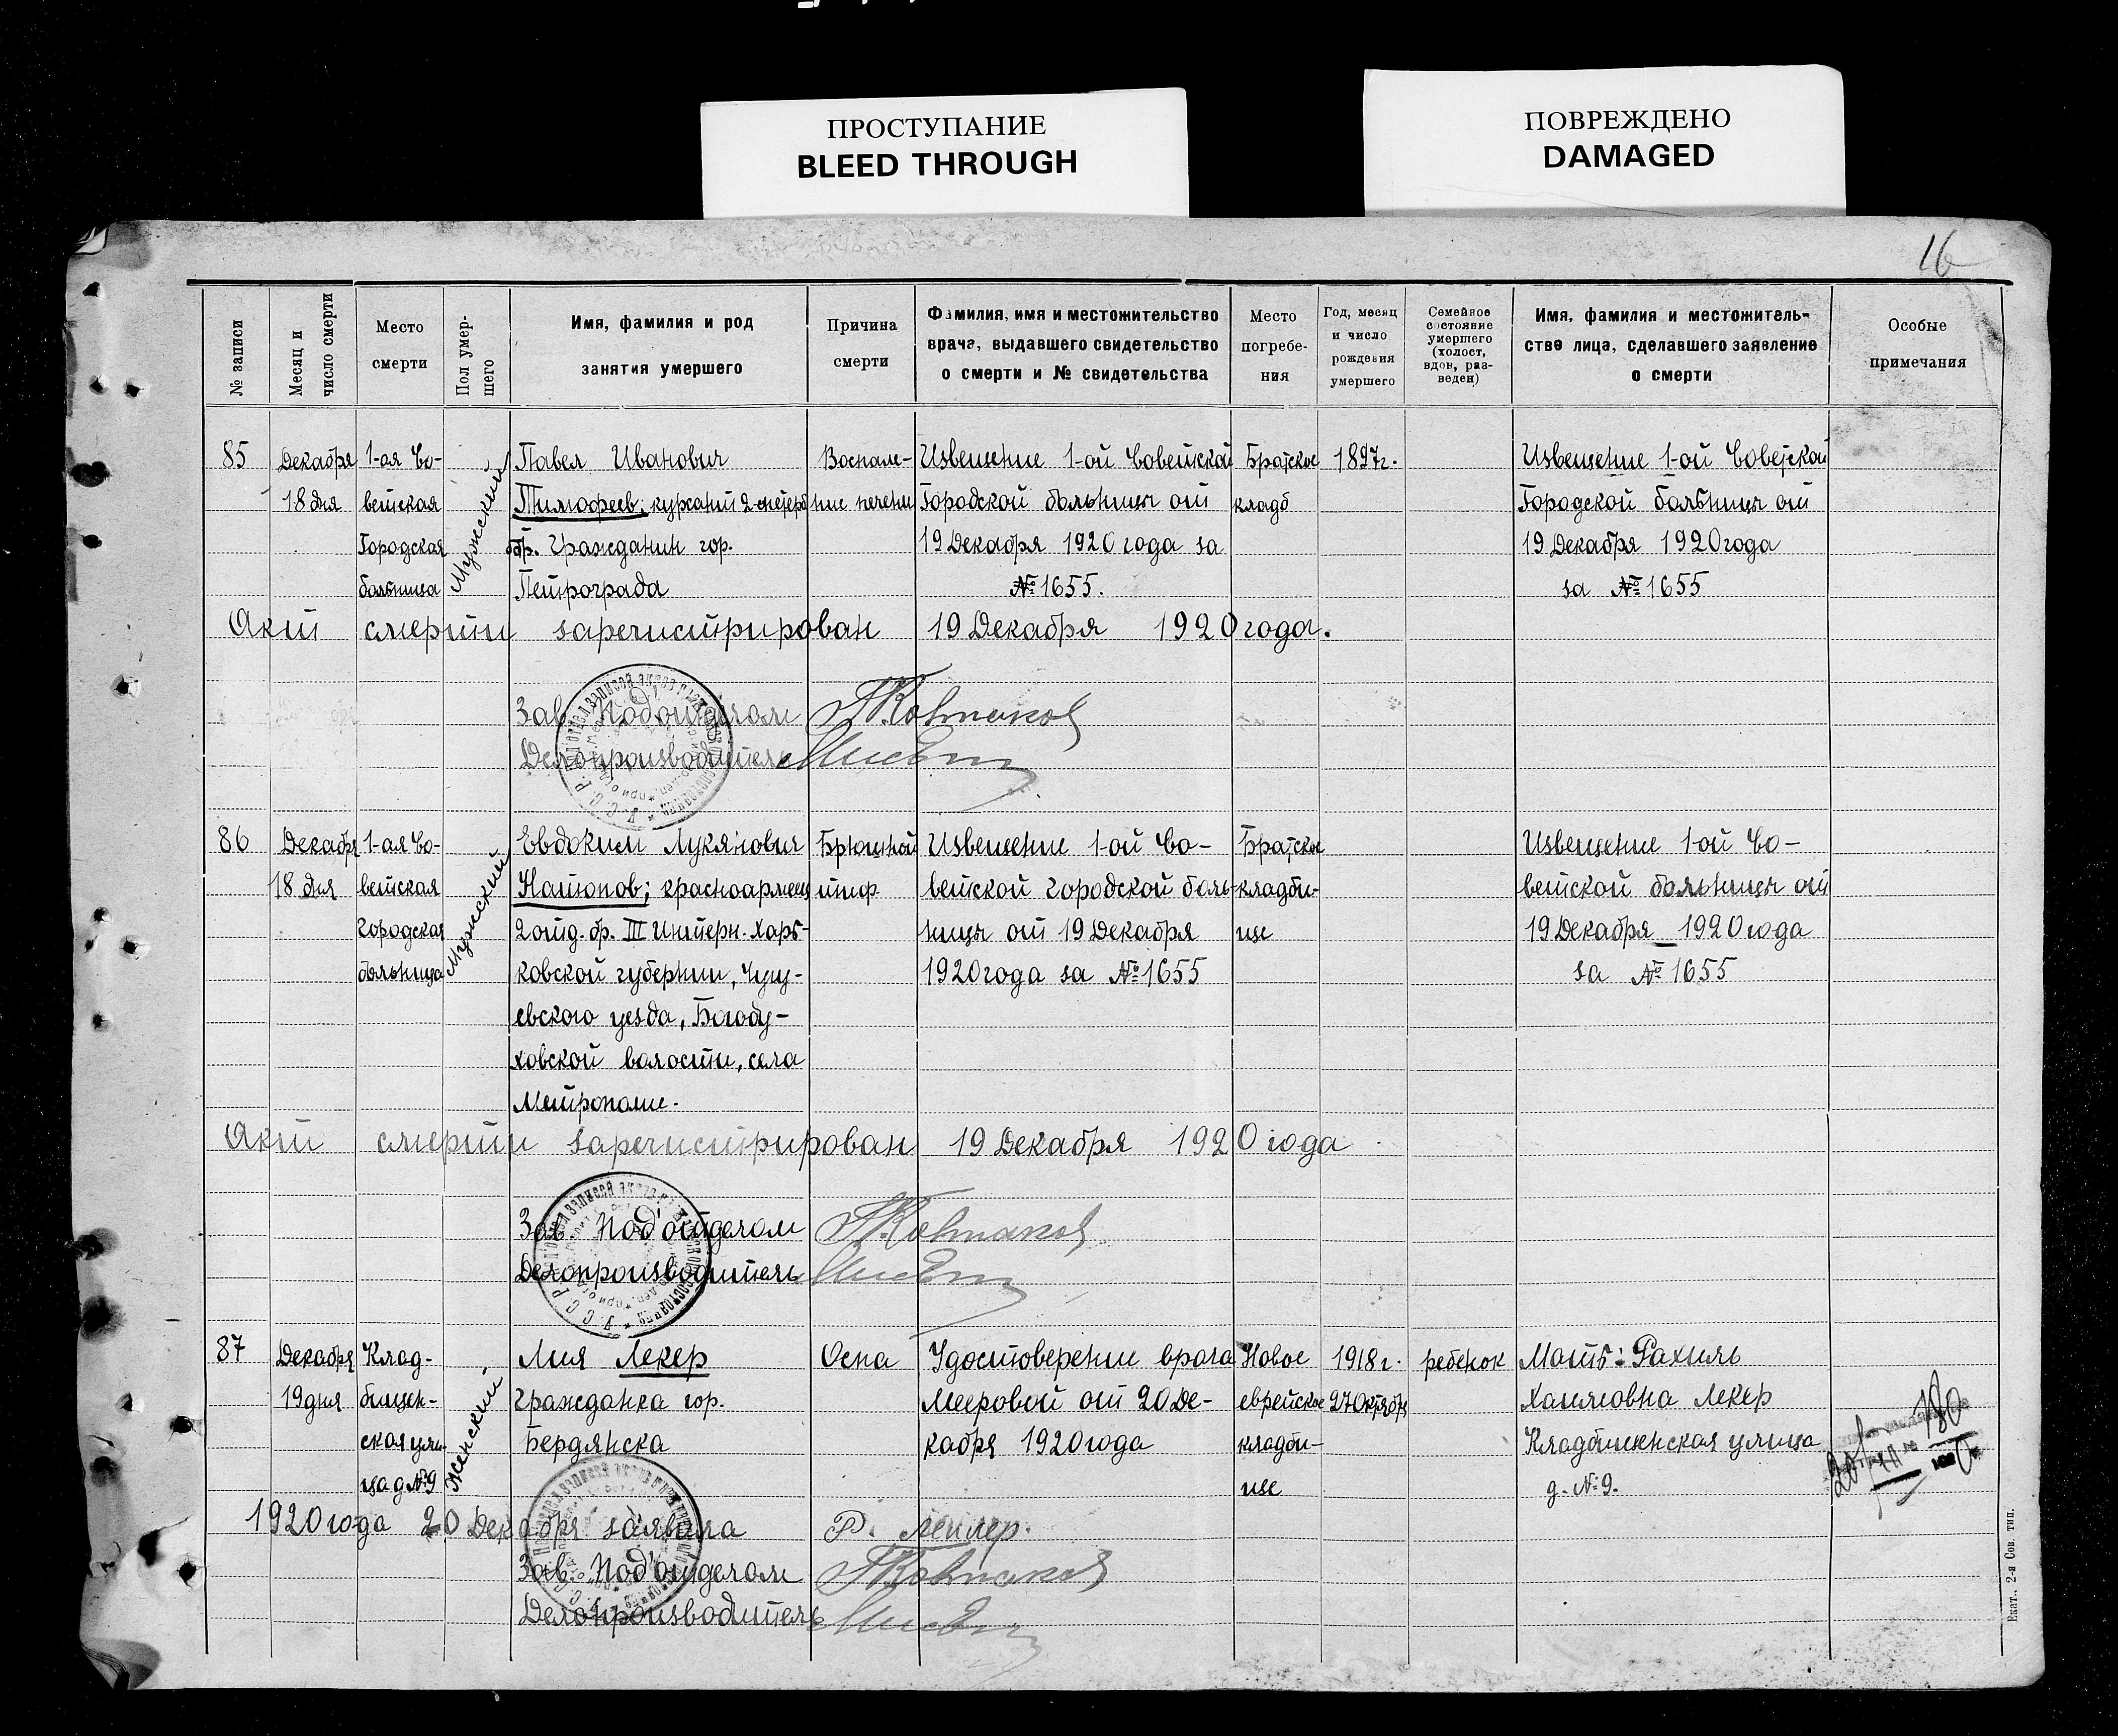 ПРОСТУПАНИЕ
BLEED THROUGH
ПОВРЕЖДЕНО
DAMAGED
16
№ записи
Месяц и число смерти
Место смерти
Пол умер-шего
Имя, фамилия и род занятия умершего
Причина смерти
Фамилия, имя и местожительство врача, выдавшего свидетельство о смерти и № свидетельства
Место погребе-ния
Год, месяц и число рождения умершего
Семейное состояние умершего (холост, вдов, раз-веден)
Имя, фамилия и местожитель-ство лица, сделавшего заявление о смерти
Особые примечания
85
Декабря
18 дня
1-ая Со-
ветская
Городская
больница
Мужской
Павел Иванович
Тимофеев;
бр. Гражданин гор.
Петрограда
Воспале-
ние печени
Извещение 1-ой Советской
Городской больницы от
19 Декабря 1920 года за
№ 1655.
Братское
кладб
1897г.
Извещение 1-ой Советской
Городской больницы от
19 Декабря 1920 года
за № 1655
Акт смерти зарегистрирован 19 Декабря 1920 года.
Зав. Подотделом
Делопроизводитель
86
Декабря
18 дня
1-ая Со-
ветская
городская
больница
Мужской
Евдоким Лукянович
красноармеец
2 отд. бр. III Интерн. Харь-
ковской губернии, Чугу-
евского уезда, Богоду-
ховской волости, села
Брюшной
тиф
Извещение 1-ой Со-
ветской городской боль-
ницы от 19 Декабря
1920 года за № 1655
Братское
кладби-
ще
Извещение 1-ой Со-
ветской больницы от
19 Декабря 1920 года
за № 1655
Акт смерти зарегистрирован 19 Декабря 1920 года
Зав. Под'отделом
Делопроизводитель
87
Декабря
19 дня
Клад-
бищен-
ская ули-
ца д №9
Женский
Лия Лекер
гражданка гор.
Бердянска
Оспа
Удостоверение врача
Мееровой от 20 Де-
кабря 1920 года
Новое
еврейское
кладби-
ще
1918г.
27 Октября
ребенок
Мать: Рахиль
Хаимовна Лекер
Кладбищенская улица
д. №9.
1920 года 20 Декабря заявила Р. Лекер.
Зав. Под'отделом
Делопроизводитель
Екат., 2-я Сов. тип.